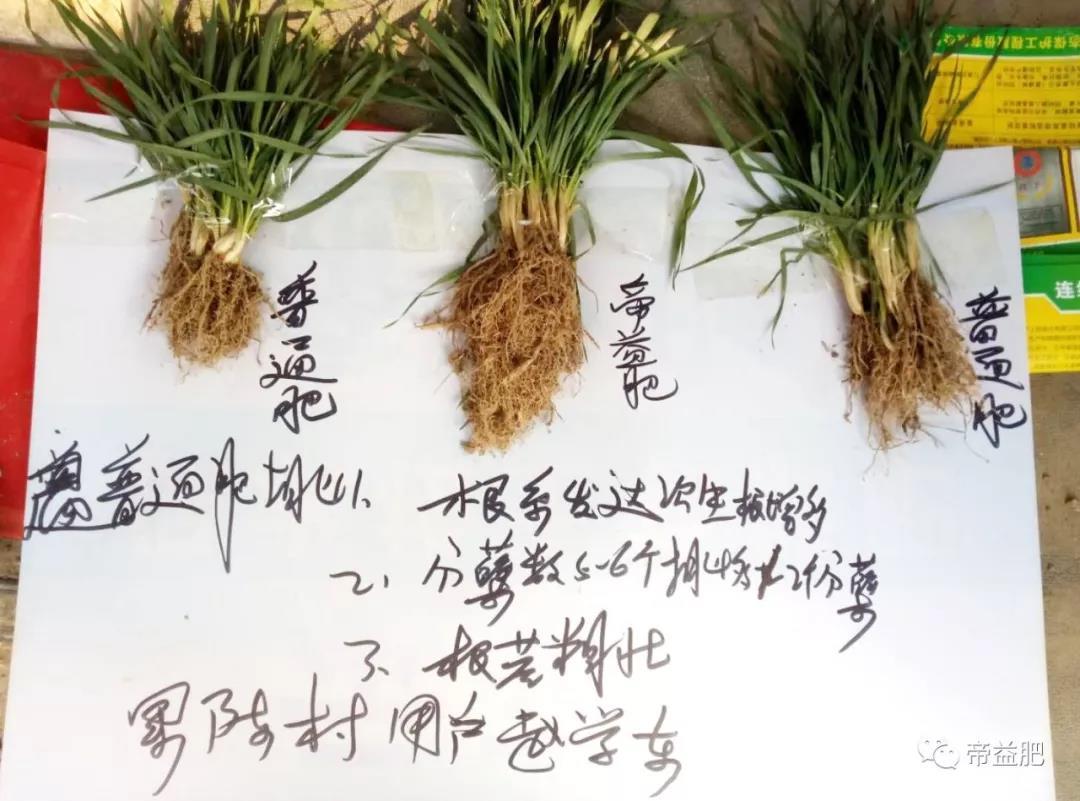 普通肥
帝益肥
普通肥
普通肥相比1、根系发达次生根增多
2、分蘖数5-6个相比多1-2份蘖
3、根茎粗壮
陈村用户赵学东
连
帝益肥